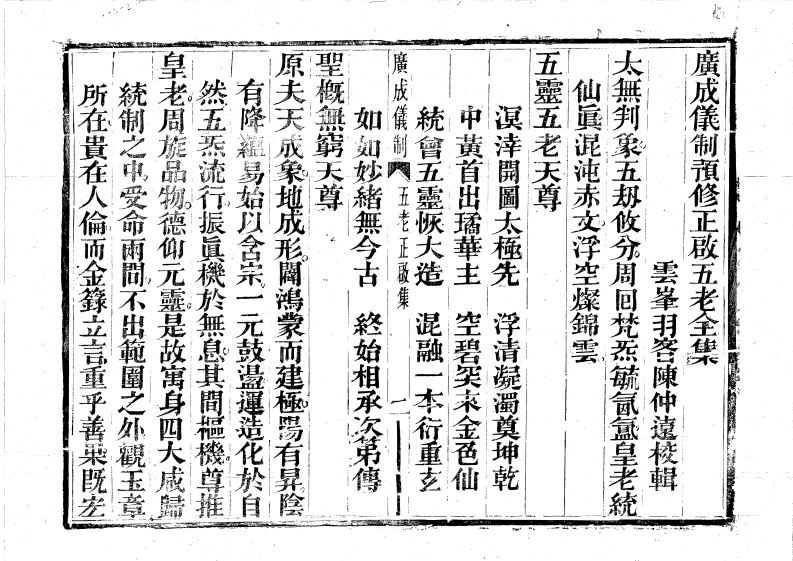 廣成儀制預修正啟五老全集
雲峯羽客陳仲遠校輯
太無判象五劫攸分周囘梵炁毓氤氳皇老統
仙眞混沌赤文浮空燦錦雲
五靈五老天尊
溟涬開圖太極先　浮清凝濁奠坤乾
中黃首出璚華主　空碧突末金色仙
統會五靈恢大造　混融一本衍重玄
廣成儀制　五老正啟集　一
如如妙緒無今古　終始相承次第傳
聖概無窮天尊
原夫天成象地成形闢鴻蒙而建極陽有昇陰
有降蘊易始以含宗一元鼓盪運造化於自
然五炁流行振眞機於無息其間樞機尊推
皇老周旋品物德仰元靈是故寓身四大咸歸
統制之中受命兩間不出範圍之外觀玉章
所在貴在人倫而金籙立言重乎善果既宏